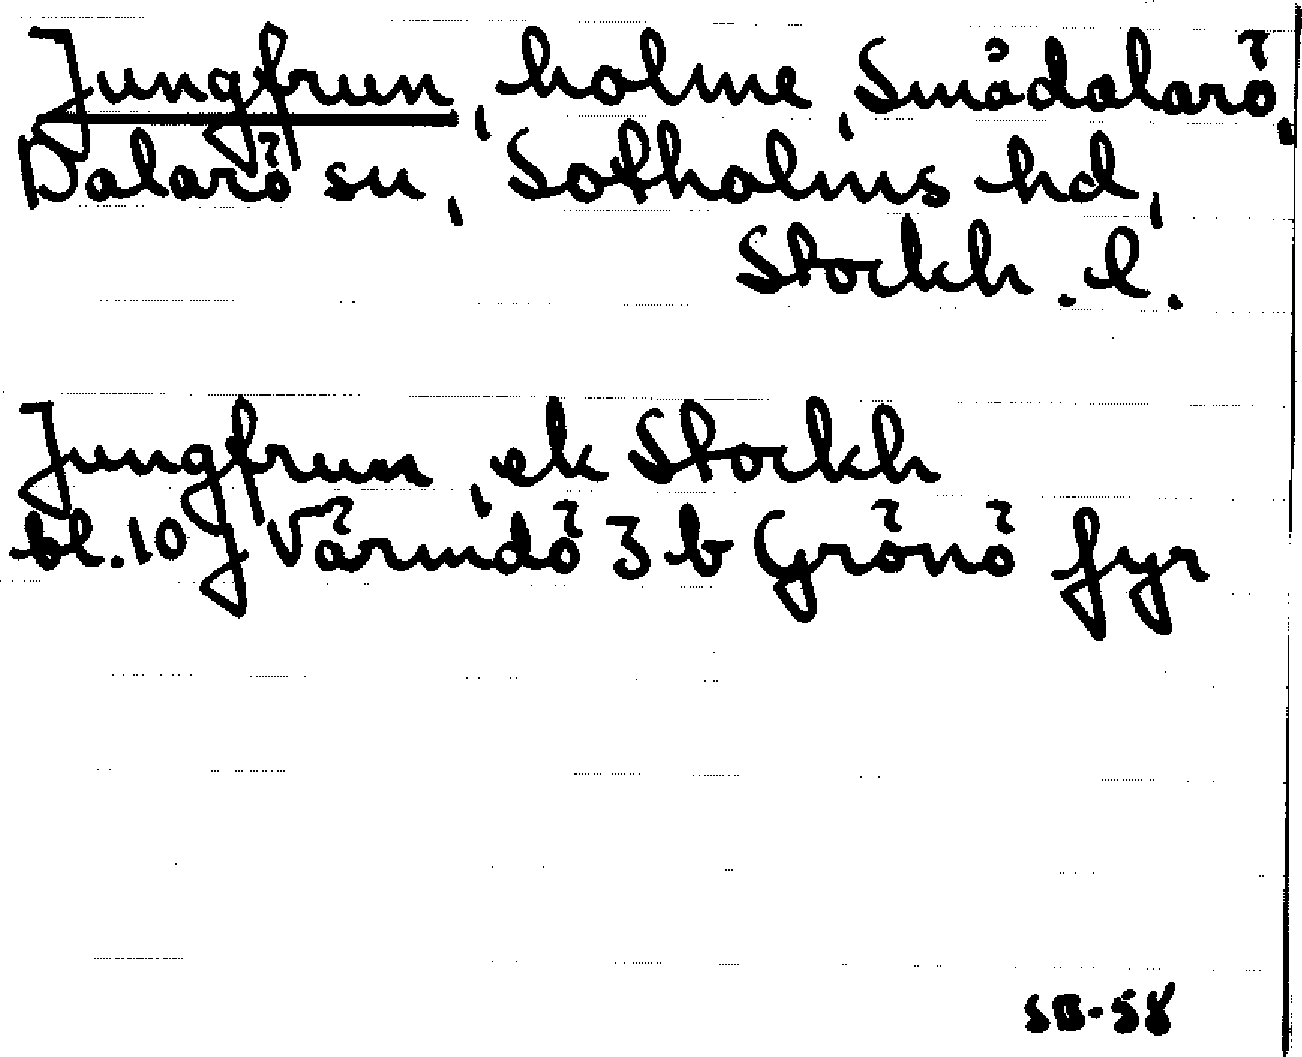 Jungfrun, holme, Smådalarö,
Dalarö sn, Sotholms hd,
Stockh. l.
Jungfrun, ek Stockh
bl. 10 J Värmdö 3 b Grönö fyr
SB-58